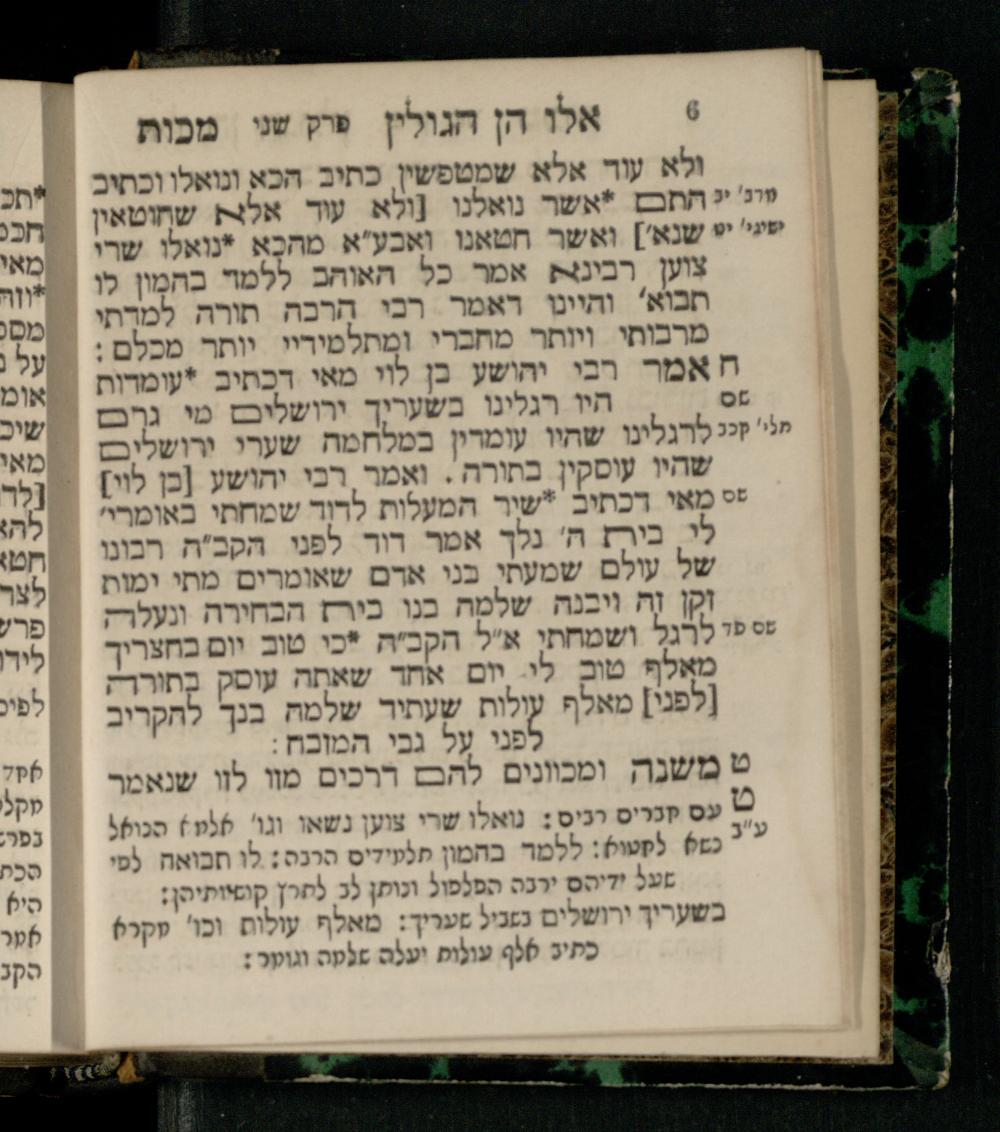 6 אלו הן הגולין פרק שני מכות
ולא עוד אלא שמטפשין כתיב הכא ונואלו וכתיב
במדב' יב התם *אשר נואלנו [ולא עוד אלא שחוטאין
ישעי' יט שנא'] ואשר חטאנו ואבע"א מהכא *נואלו שרי
צוען רבינא אמר כל האוהב ללמד בהמון לו
תבוא' והיינו דאמר רבי הרבה תורה למדתי
מרבותי ויותר מחברי ומתלמידיי יותר מכלם :
ח אמר רבי יהושע בן לוי מאי דכתיב *עומדות
שם היו רגלינו בשעריך ירושלים מי גרם
תלי' קכב לרגלינו שהיו עומדין במלחמה שערי ירושלים
שהיו עוסקין בתורה . ואמר רבי יהושע [בן לוי]
שם מאי דכתיב *שיר המעלות לדוד שמחתי באומרי'
לי בית ה' נלך אמר דוד לפני הקב"ה רבונו
של עולם שמעתי בני אדם שאומרים מתי ימות
זקן זה ויבנה שלמה בנו בית הבחירה ונעלה
שם פד לרגל ושמחתי א"ל הקב"ה *כי טוב יום בחצריך
מאלף טוב לי יום אחד שאתה עוסק בתורה
[לפני] מאלף עולות שעתיד שלמה בנך להקריב
לפני על גבי המזבח :
ט משנה ומכוונים להם דרכים מזו לזו שנאמר
ט עם חברים רבים : נואלו שרי צוען נשאו וגו' אלמא הנואל
ע"ב נשא לחטוא : ללמד בהמון תלמידים הרבה : לו תבואה לפי
שעל ידיהם ירבה הפלפול ונותן לב לתרץ קושיותיהן :
בשעריך ירושלים בשביל שעריך : מאלף עולות וכו' מקרא
כתיב אלף עולות יעלה שלמה וגומר :
*תכ
חכמ
מאי
*ווה
מסכ
על
אומ
שיכ
מאי
[לדו
להא
חטא
לצר
פרש
לידו
לפיכ
בפרש
הכת
היא
אמר
הקב